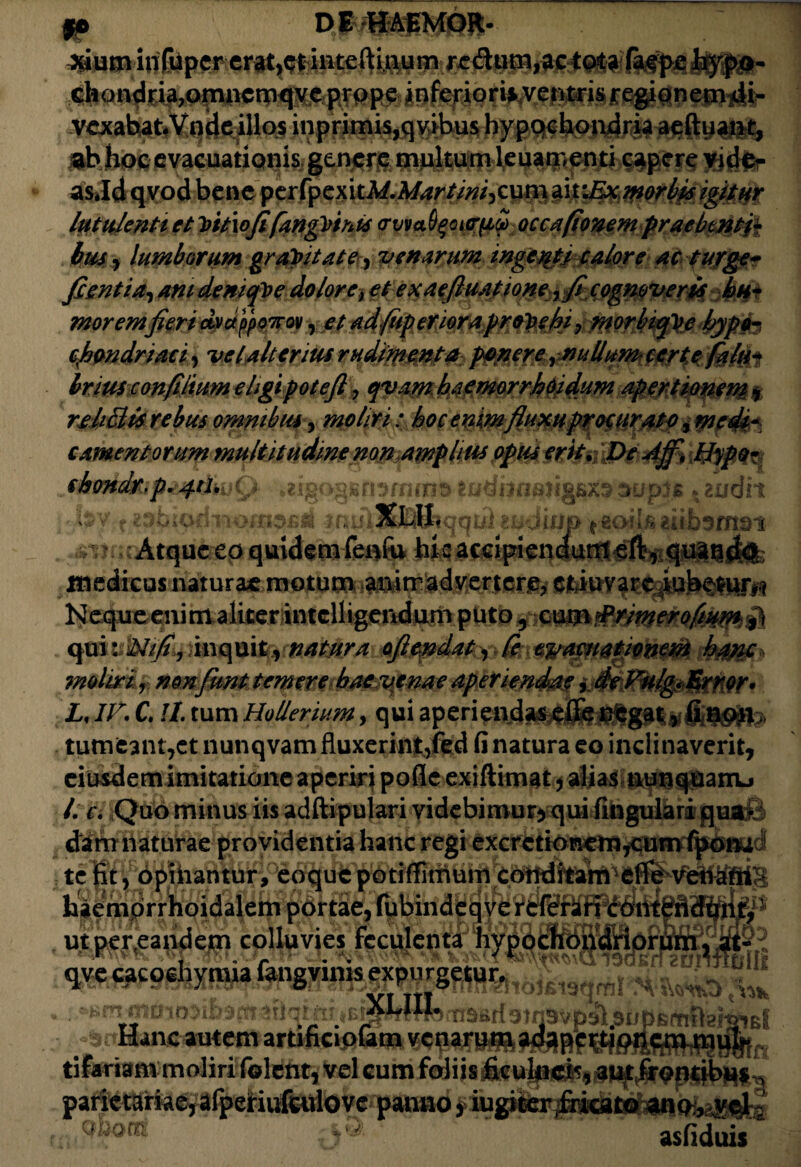 50 DE HAEMOR-
xium insuper erat, et intestinum rectum, ac tota saepe hypo-
chondria, omnemqve prope inferioris ventris regionem di-
vexabat. Vnde illos inprimis, qvibus hypochondria aestuant,
ab hoc evacuationis genere multum leuamenti capere vide-
as. Id qvod bene perspexit M. Martini, cum ait: Ex morbis igitur
lutulenti et vitiosi sangvinis συναθροισμῷ occasionem praebenti-
bus, lumborum gravitate, venarum ingenti calore ac turge-
scentia, ani deniqve dolore, et ex aestuatione, si cognoveris hu-
morem fieri ἀνάρροπον, et ad superiora provehi, morbiqve hypo-
chondriaci, vel alterius rudimenta ponere, nullum certe salu-
brius consilium eligi potest, qvam haemorrhoidum apertionem,
relictis rebus omnibus, moliri: hoc enim fluxu procurato, medi-
camentorum multitudine non amplius opus erit. De Aff. Hypo-
chondr. p. 411.
XLII.
Atque eo quidem sensu hic accipiendum est, quando
medicus naturae motum animadvertere, et iuvare iubetur.
Neque enim aliter intelligendum puto, cum Primerosium,
qui: Nisi, inquit, natura ostendat, se evacuationem hanc
moliri, non sunt temere hae venae aperiendae, de Vulg. Error.
L. IV. C. II. tum Hollerium, qui aperiendas esse negat, si non
tumeant, et nunqvam fluxerint, sed si natura eo inclinaverit,
eiusdem imitatione aperiri posse existimat, alias nunquam
l. c. Quo minus iis adstipulari videbimur, qui singulari qua-
dam naturae providentia hanc regi excretionem, cum spon-
te fit, opinantur, eoque potissimum conditam esse venam
haemorrhoidalem portae, subindeqve referari contendunt,
ut per eandem colluvies feculenta hypochondriorum, at-
qve cacochymia sangvinis expurgetur.
XLIII.
Hanc autem artificiosam venarum adapertionem mul-
tifariam moliri solent, vel cum foliis ficulneis, aut frontibus
parietariae, asperiusculove panno, iugiter fricato ano, vel
asfiduis